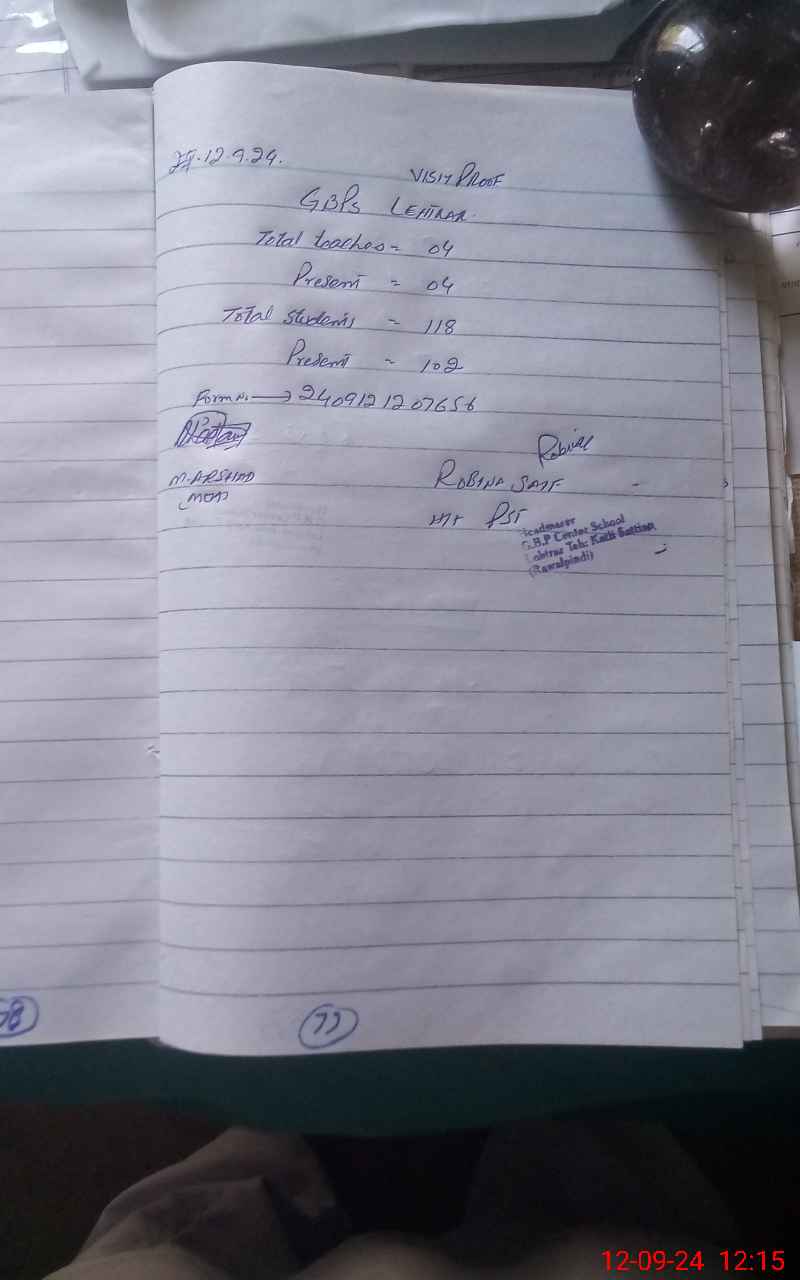 12.9.24.
VISIT PROOF
GBPS LEHTRAR.
Total teaches = 04
Present = 04
Total students = 118
Present = 102
Form No. → 2409121207656
M. ARSHAD
ROBINA SAIF
PST
Headmaster
G.B.P Center School
Lehtrar Teh: Kotli Sattian
(Rawalpindi)
77
12-09-24 12:15